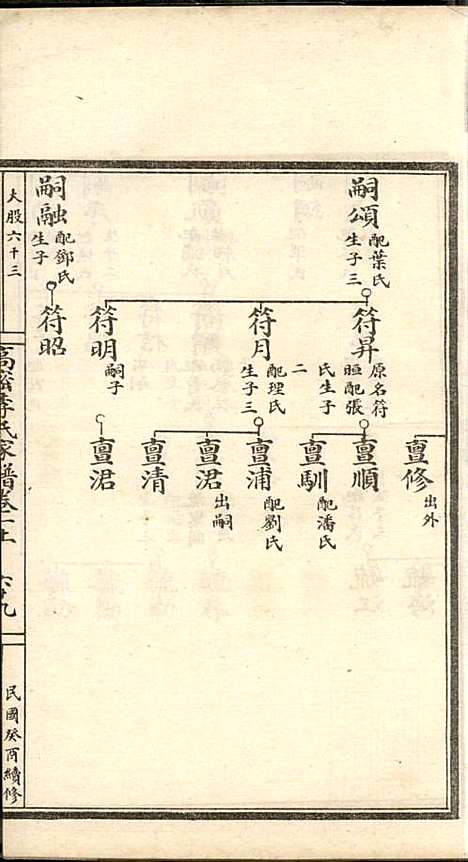 亶修 出外
嗣頌 配葉氏生子三
符昇 原名符晅配張氏生子二
亶順
亶馴 配潘氏
符月 配理氏生子三
亶浦 配劉氏
亶涒 出嗣
亶清
符明 嗣子
亶涒
嗣融 配鄧氏生子
符昭
大股六十三
高 李氏家譜卷一上 六十九
民國癸酉續修